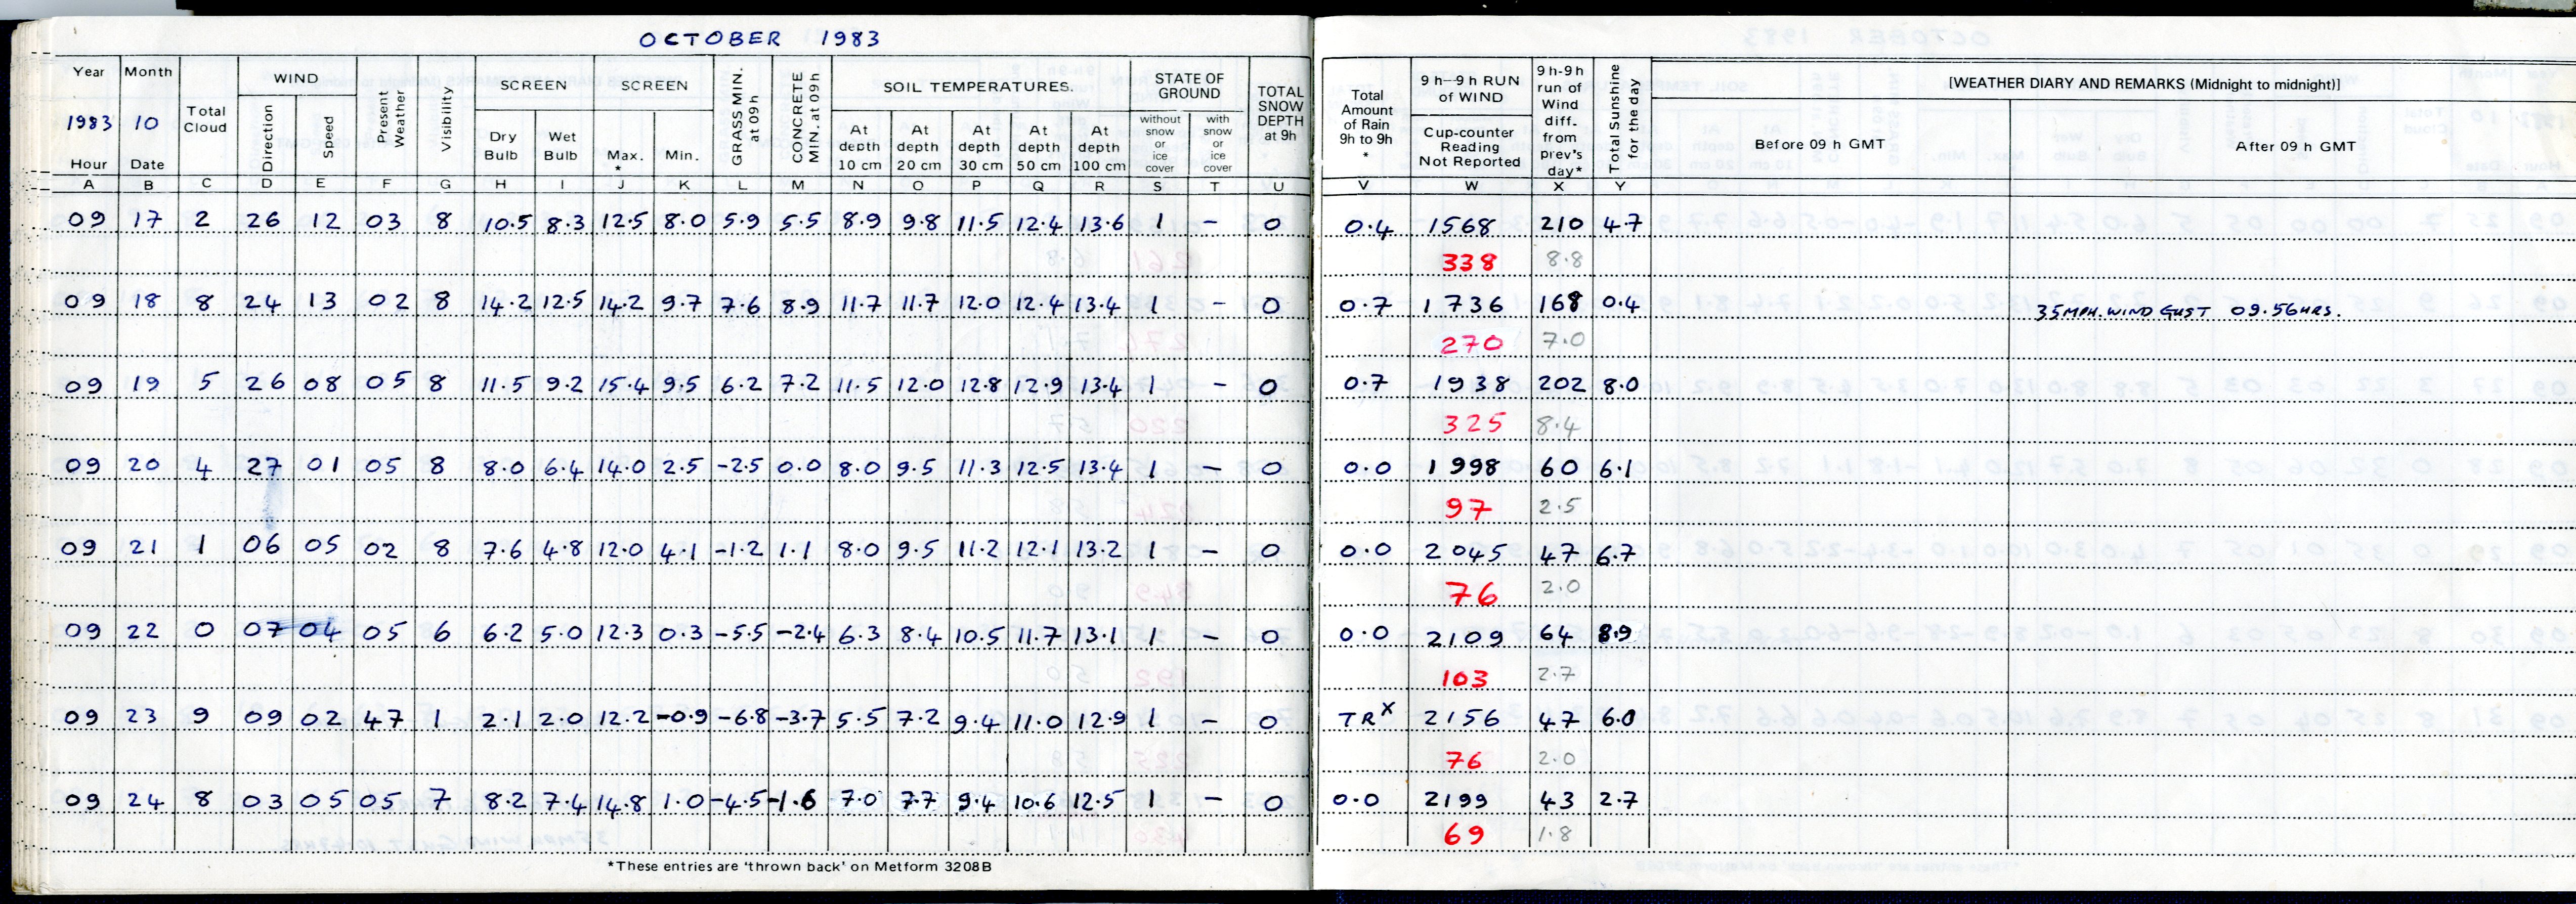 OCTOBER 1983
Year Month Total Cloud WIND Direction Speed Present Weather Visibility SCREEN Dry Bulb Wet Bulb SCREEN Max. * Min. GRASS MIN. at 09h CONCRETE MIN. at 09h SOIL TEMPERATURES. At depth 10 cm At depth 20 cm At depth 30 cm At depth 50 cm At depth 100 cm STATE OF GROUND without snow or ice cover with snow or ice cover TOTAL SNOW DEPTH at 9h Total Amount of Rain 9h to 9h * 9 h-9 h RUN of WIND Cup-counter Reading Not Reported 9 h-9h run of Wind diff. from prev's day* Total Sunshine for the day [WEATHER DIARY AND REMARKS (Midnight to midnight)]
1983 10
Hour Date Before 09 h GMT After 09 h GMT
A B C D E F G H I J K L M N O P Q R S T U V W X Y
09 17 2 26 12 03 8 10.5 8.3 12.5 8.0 5.9 5.5 8.9 9.8 11.5 12.4 13.6 1 - 0 0.4 1568 210 4.7
338 8.8
09 18 8 24 13 02 8 14.2 12.5 14.2 9.7 7.6 8.9 11.7 11.7 12.0 12.4 13.4 1 - 0 0.7 1736 168 0.4 35MPH. WIND GUST 09.56HRS.
270 7.0
09 19 5 26 08 05 8 11.5 9.2 15.4 9.5 6.2 7.2 11.5 12.0 12.8 12.9 13.4 1 - 0 0.7 1938 202 8.0
325 8.4
09 20 4 27 01 05 8 8.0 6.4 14.0 2.5 -2.5 0.0 8.0 9.5 11.3 12.5 13.4 1 - 0 0.0 1998 60 6.1
97 2.5
09 21 1 06 05 02 8 7.6 4.8 12.0 4.1 -1.2 1.1 8.0 9.5 11.2 12.1 13.2 1 - 0 0.0 2045 47 6.7
76 2.0
09 22 0 07 04 05 6 6.2 5.0 12.3 0.3 -5.5 -2.4 6.3 8.4 10.5 11.7 13.1 1 - 0 0.0 2109 64 8.9
103 2.7
09 23 9 09 02 47 1 2.1 2.0 12.2 -0.9 -6.8 -3.7 5.5 7.2 9.4 11.0 12.9 1 - 0 TRX 2156 47 6.0
76 2.0
09 24 8 03 05 05 7 8.2 7.4 14.8 1.0 -4.5 -1.6 7.0 7.7 9.4 10.6 12.5 1 - 0 0.0 2199 43 2.7
69 1.8
*These entries are 'thrown back' on Metform 3208B